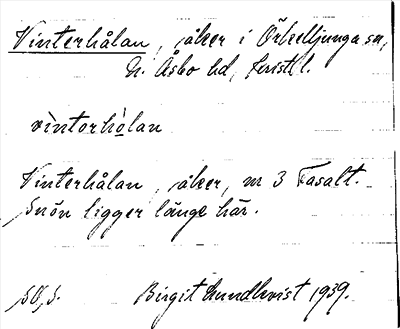 Vinterhålan, åker i Örkelljunga sn,
N. Åsbo hd, Kristl l.
vìntorhòlan
Vinterhålan, åker, nr 3 Fasalt.
Snön ligger länge här.
Birgit Lundkvist 1939.